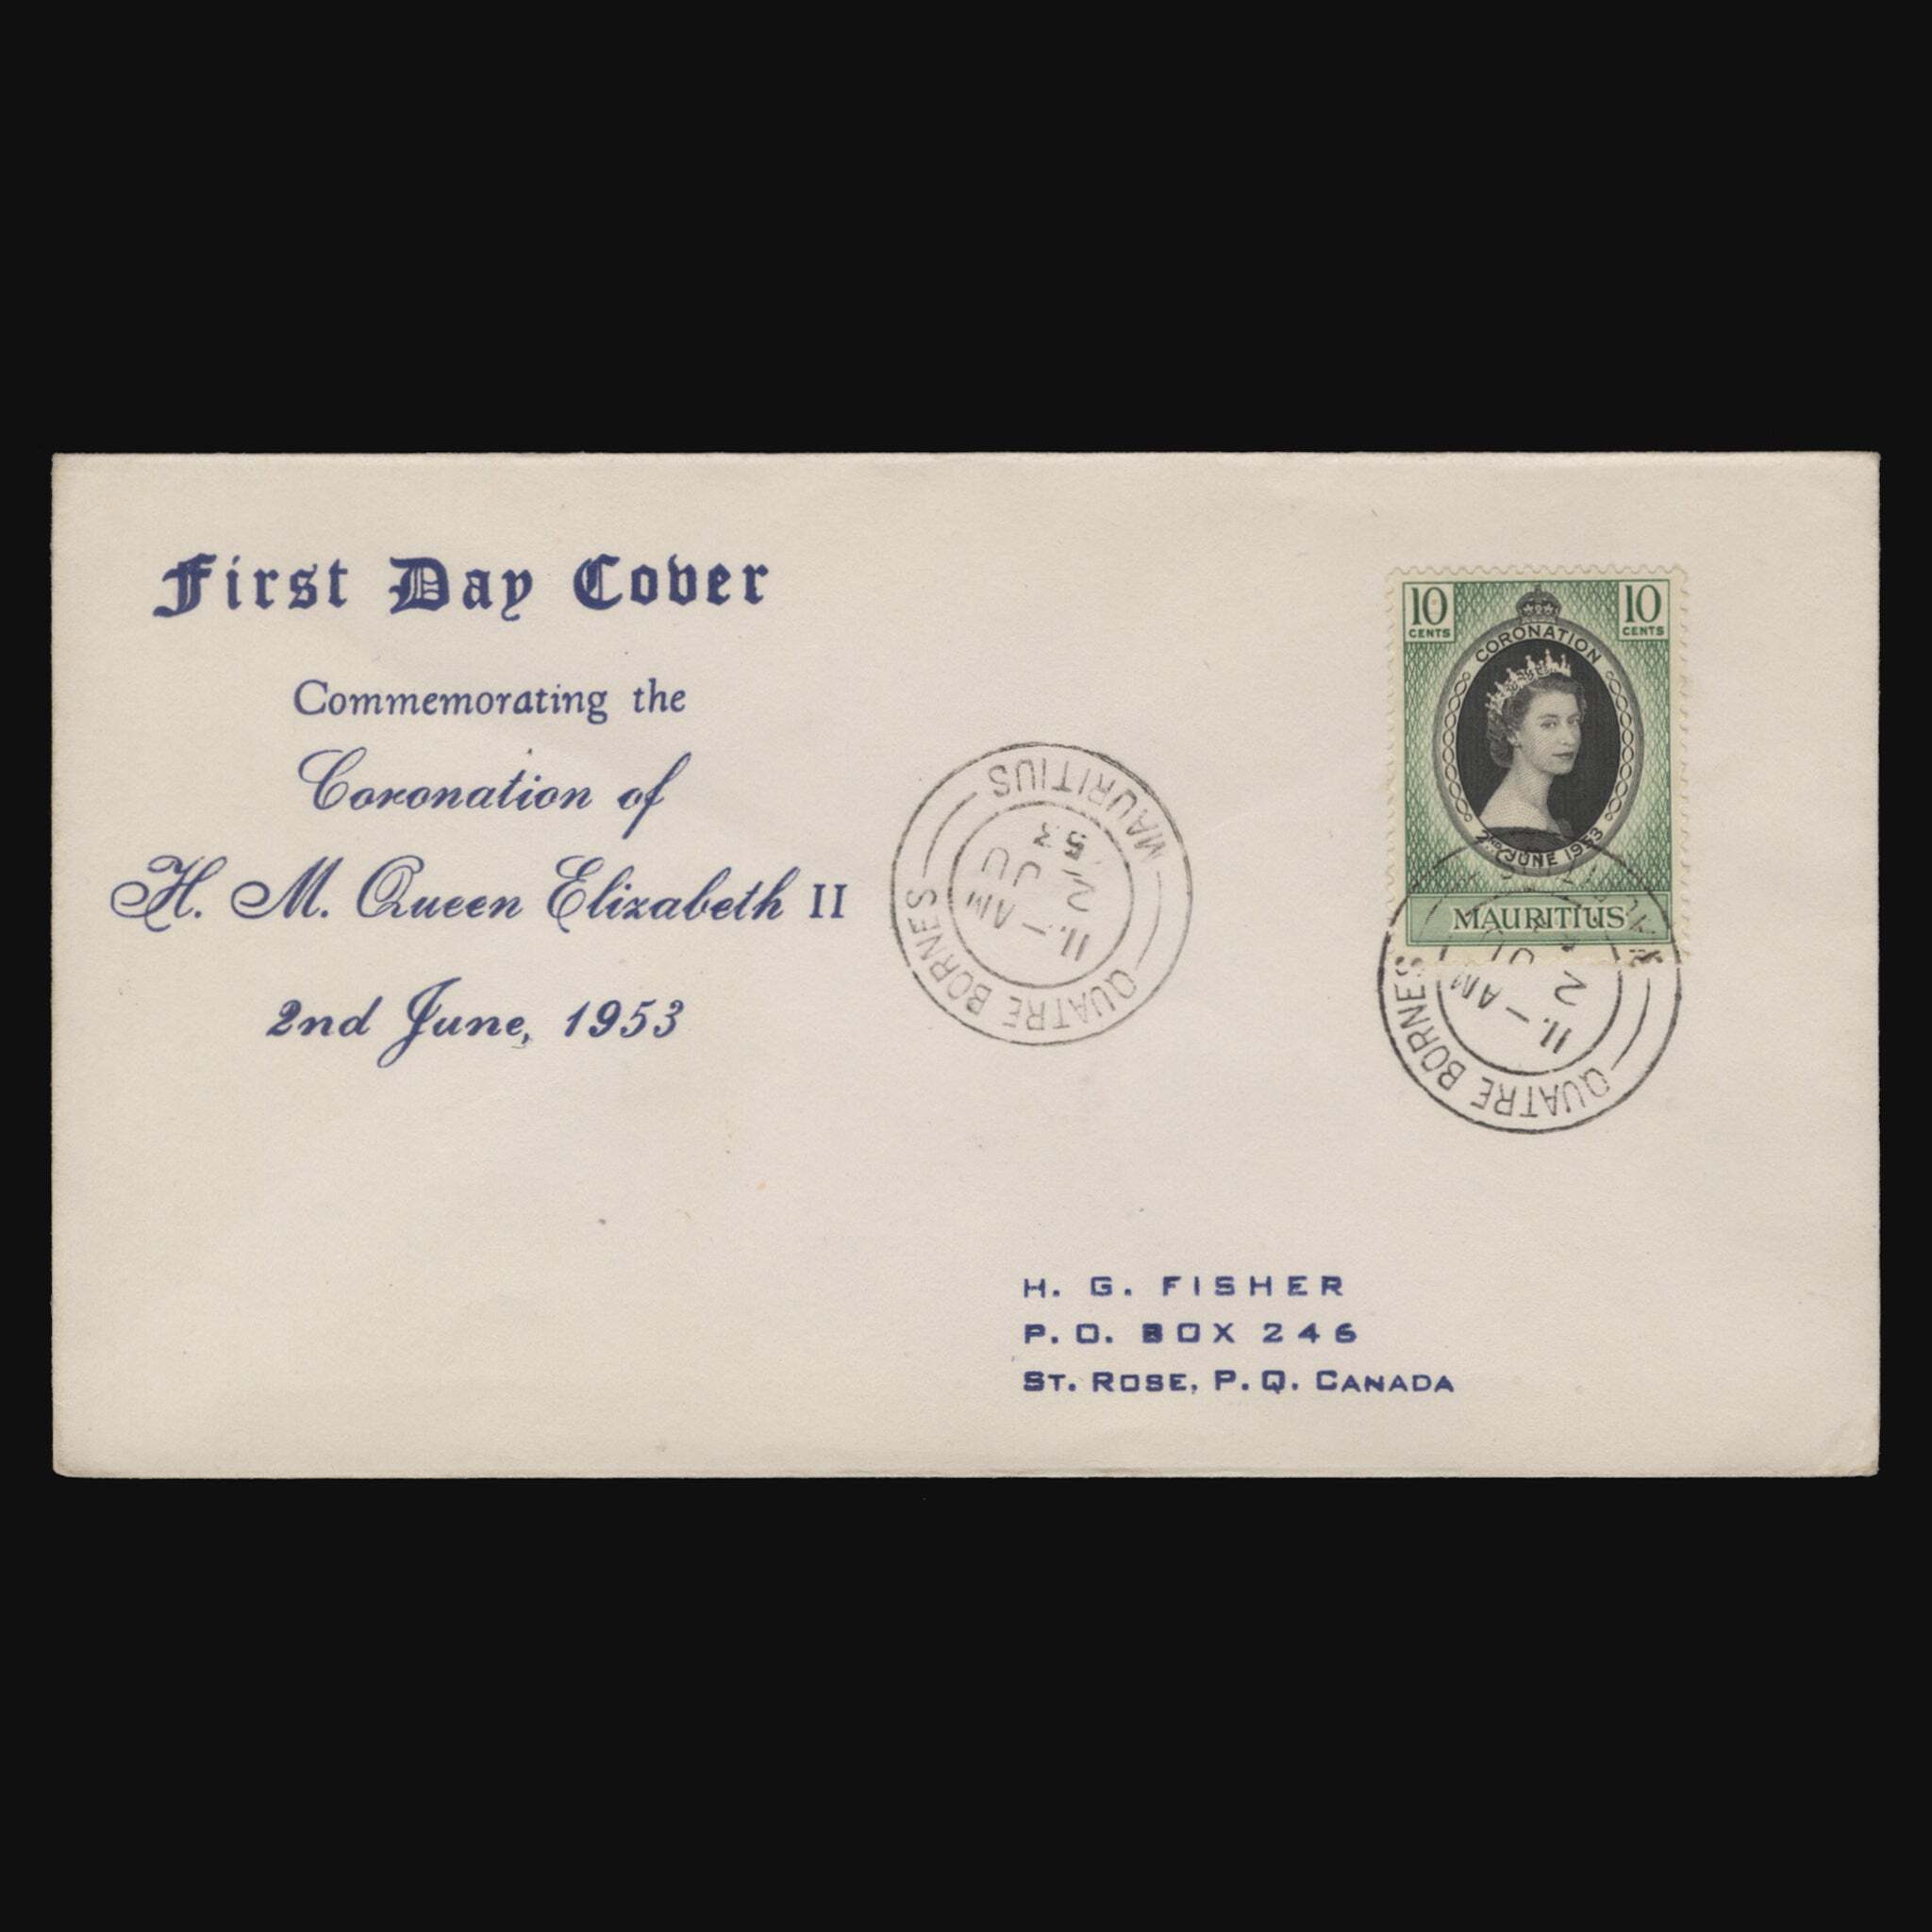 First Day Cover
Commemorating the
Coronation of
H. M. Queen Elizabeth II
2nd June, 1953
MAURITIUS
QUATRE BORNES
11.– AM
2 JU
53
10 CENTS
10 CENTS
CORONATION
2ND JUNE 1953
MAURITIUS
QUATRE BORNES
11.– AM
2 JU
H. G. FISHER
P. O. BOX 246
ST. ROSE, P. Q. CANADA